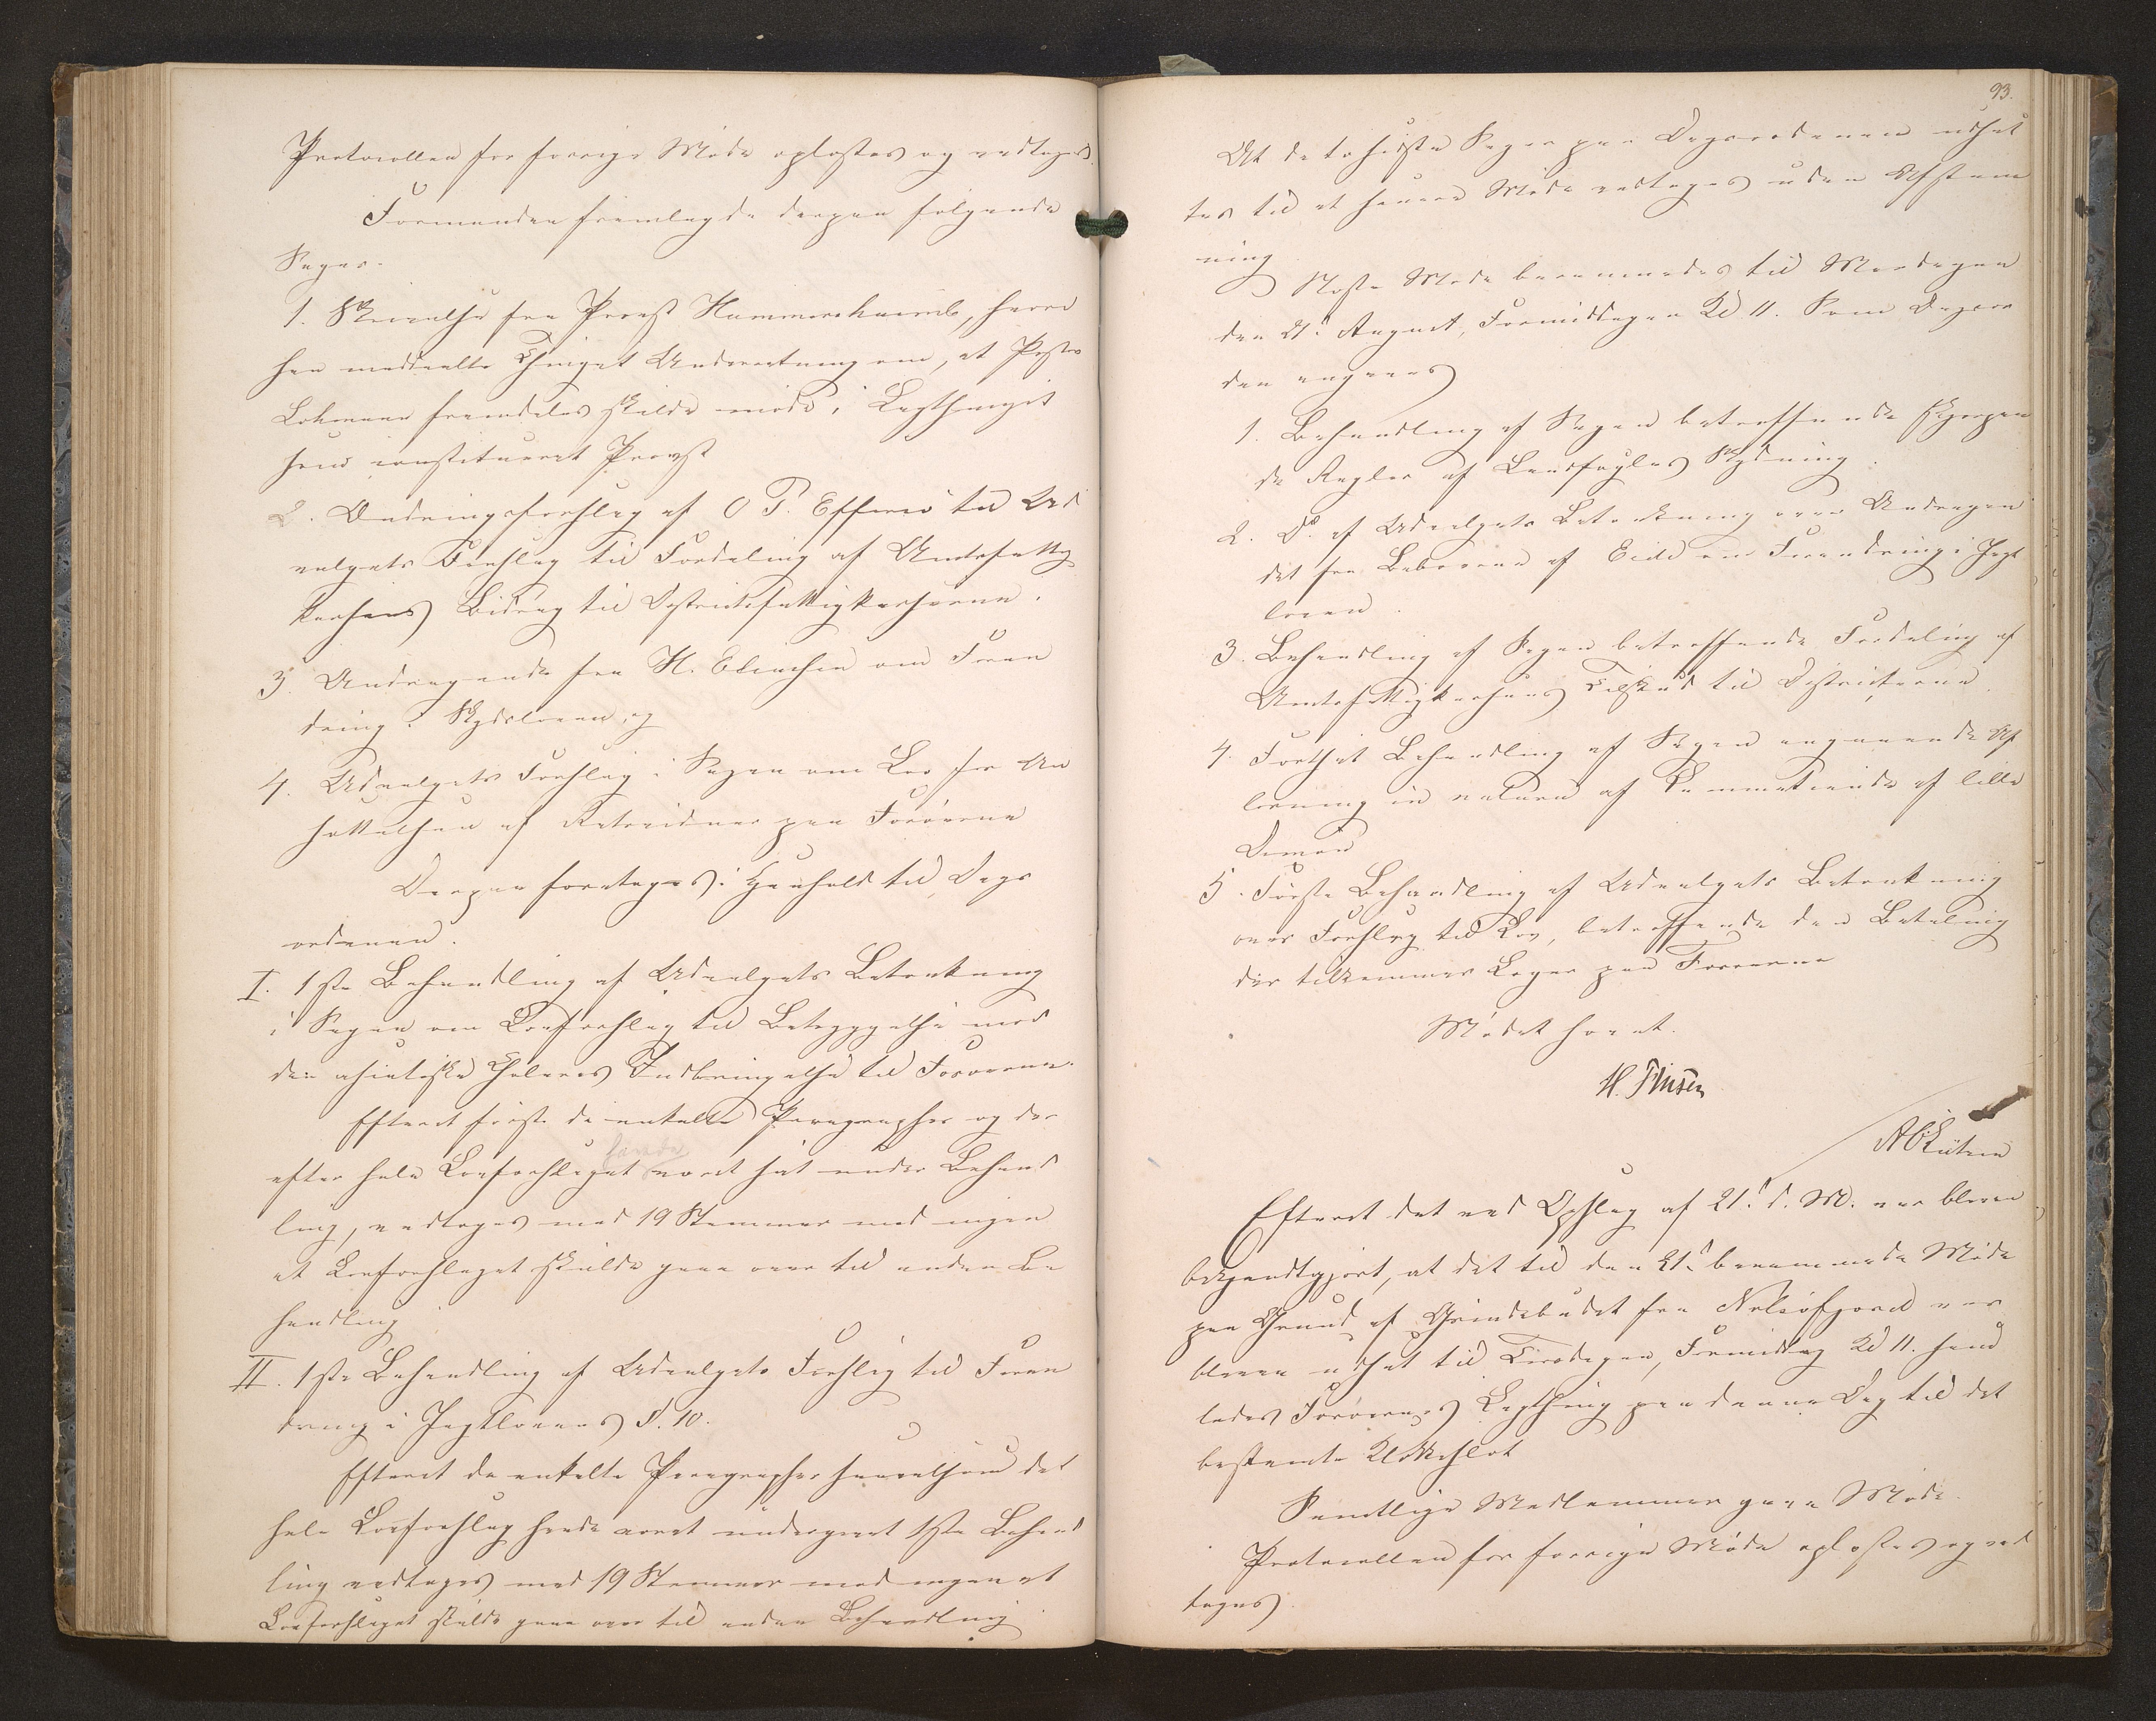 Protocollen for forrige Møde oplæstes og vedtoges.
Formanden fremlagde derpaa følgende
Sager.
1. Skrivelse fra Provst Hammershaimb, hvori
han meddeelte Thinget Underretning om, at Pastor
Lohmann fremdeles skulde møde i Lagthinget
som constitueret Provst
2. Ændringsforslag af O P. Effersö til Ud
valgets Forslag til Fordeling af Amtsfattig
kassens Bidrag til Districtsfattigkasserne.
3. Andragende fra H. Eliasen om Foran
dring i Skydsloven, og
4. Udvalgets Forslag i Sagen om Lov for An
sættelsen af Retsvidner paa Færøerne
Derpaa foretoges i Henhold til Dags
ordenen.
I. 1ste Behandling af Udvalgets Betænkning
i Sagen om Lovforslag til Betryggelse mod
den asiatiske Choleras Indbringelse til Færøerne.
Efterat først de enkelte Paragrapher og der
havde
efter hele Lovforslaget været sat under Behand
ling, vedtoges med 19 Stemmer mod ingen
at Lovforslaget skulde gaae over til anden Be
handling
II. 1ste Behandling af Udvalgets Forslag til Foran
dring i Jagtlovens §. 10.
Efterat de enkelte Paragrapher saavelsom det
hele Lovforslag havde været undergivet 1ste Behand
ling vedtoges med 19 Stemmer mod ingen at
Lovforslaget skulde gaae over til anden Behandling
93.
At de to sidste Sager paa Dagsordenen udsæt
tes til et senere Møde vedtoges uden Afstem
ning
Næste Møde berammedes til Mandagen
den 21. August, Formiddagen Kl 11. Som Dagsor
den angaves
1. Behandling af Sagen betreffende
de Regler af Landfugles Skydning.
2. Do. af Udvalgets Betænkning over Andragen
det fra Beboerne af Eide om Forandring i Jagt
loven.
3. Behandling af Sagen betreffende Fordeling af
Amtsfattigkassens Tilskud til Districterne
4. Fortsat Behandling af Sagen angaaende Af
løsning in natura af Sammetiende af lille
Dimon
5. Første Behandling af Udvalgets Betænkning
over Forslag til Lov, betreffende den Betaling
der tilkommer Læger paa Færøerne
Mødet hævet.
H. Finsen

Efterat det ved Opslag af 21. d. M. var bleven
bekjendtgjort, at det til den 21. berammede Møde
paa Grund af Grindebudet fra var
bleven udsat til Tirsdagen, Formiddag Kl 11. sam
ledes Færøernes Lagthing paa denne Dag til det
bestemte Klokkeslæt
Samtlige Medlemmer gave Møde.
Protocollen for forrige Møde oplæstes og ved
toges.